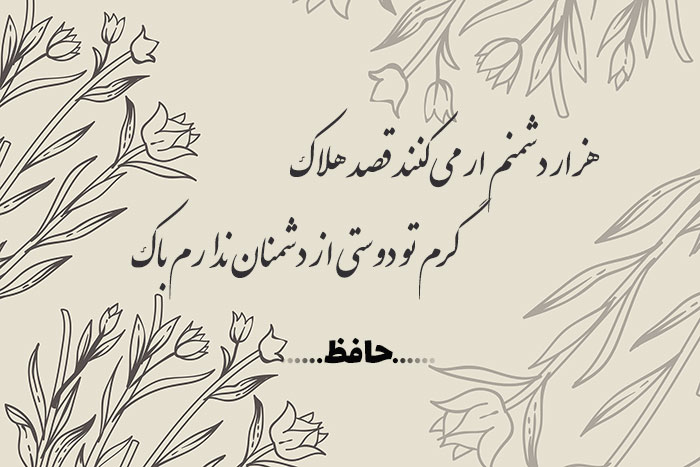 هزار دشمنم ار می کنند قصد هلاک
گرم تو دوستی از دشمنان ندارم باک
......حافظ......